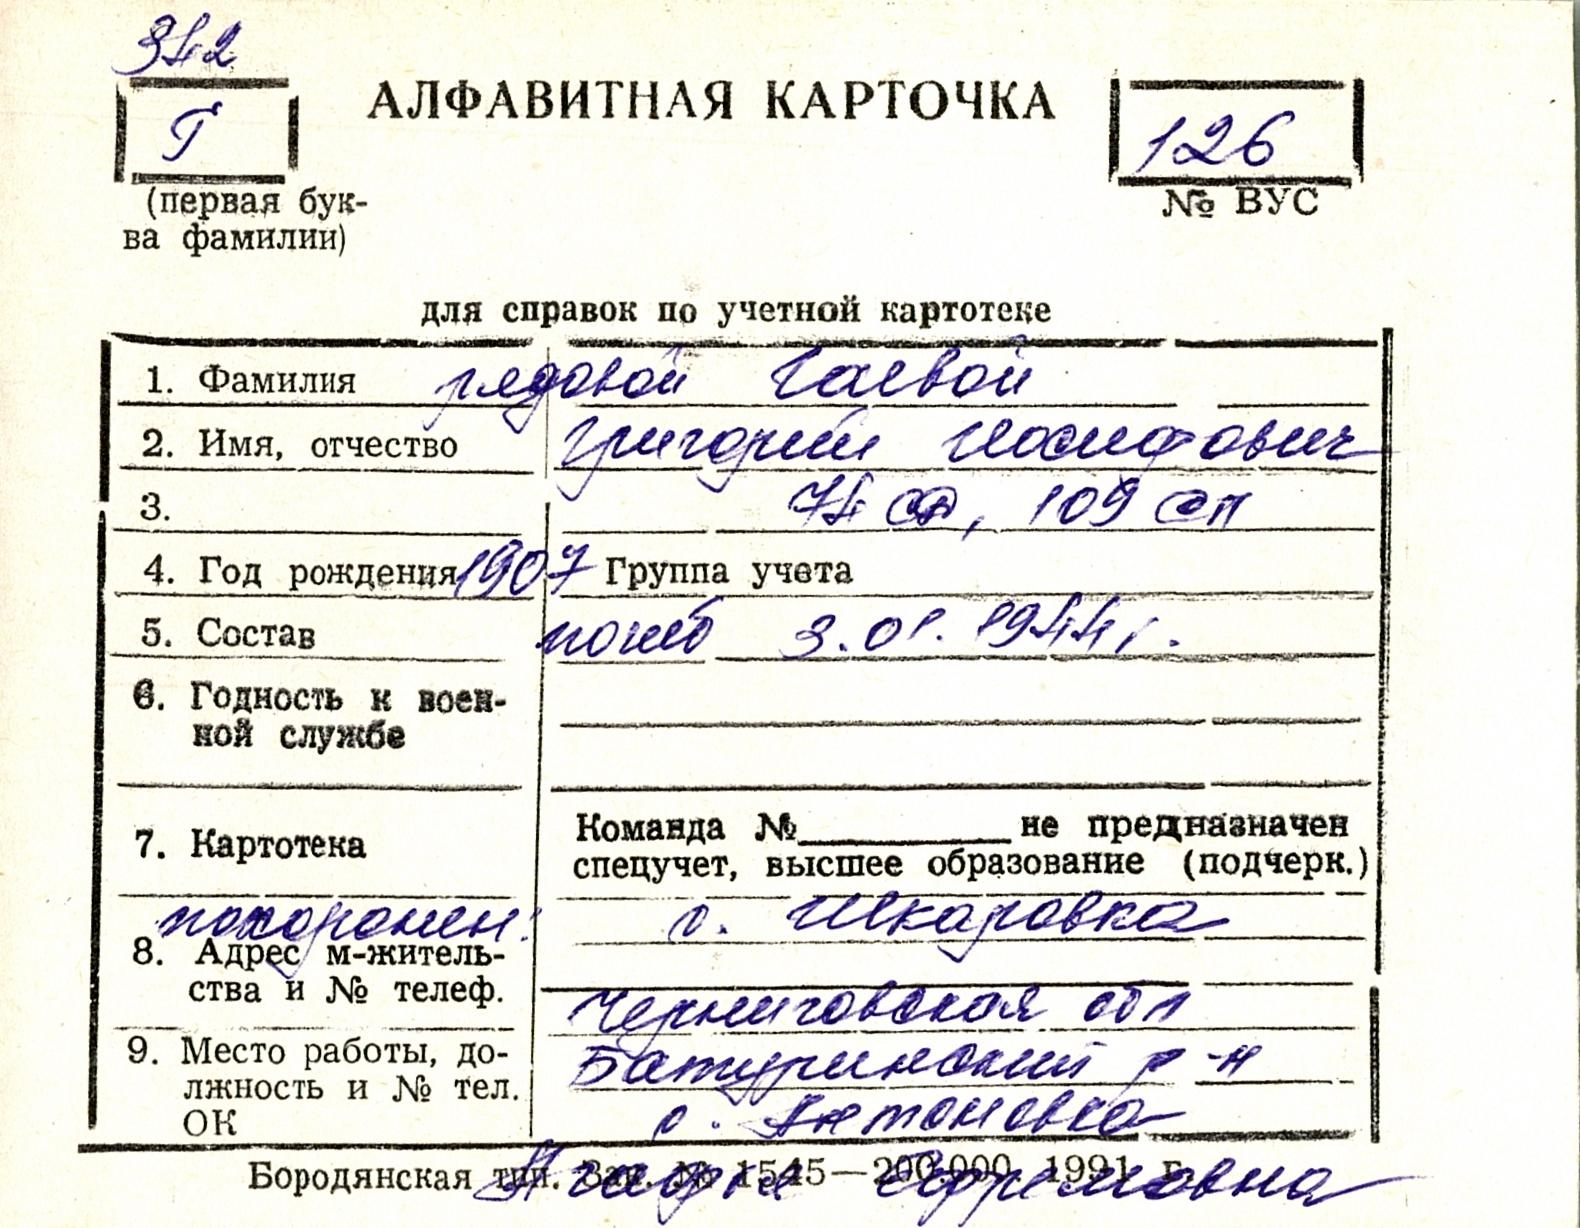 342
Г
АЛФАВИТНАЯ КАРТОЧКА
126
(первая бук-
ва фамилии)
№ ВУС
для справок по учетной картотеке
1. Фамилия рядовой Гаевой
2. Имя, отчество Григорий Иосифович
3. 74 сд, 109 сп
4. Год рождения 1907 Группа учета
5. Состав погиб 3.01.1944 г.
6. Годность к воен-
ной службе
7. Картотека
Команда № не предназначен
спецучет, высшее образование (подчерк.)
похоронен: с. Шкаровка
8. Адрес м-житель-
ства и № телеф.
Черниговская обл
9. Место работы, до-
лжность и № тел.
ОК
Батуринский р-н
с. Антоновка
Бородянская тип. Зак. № 1545—200.000 1991 г.
Ефремовна